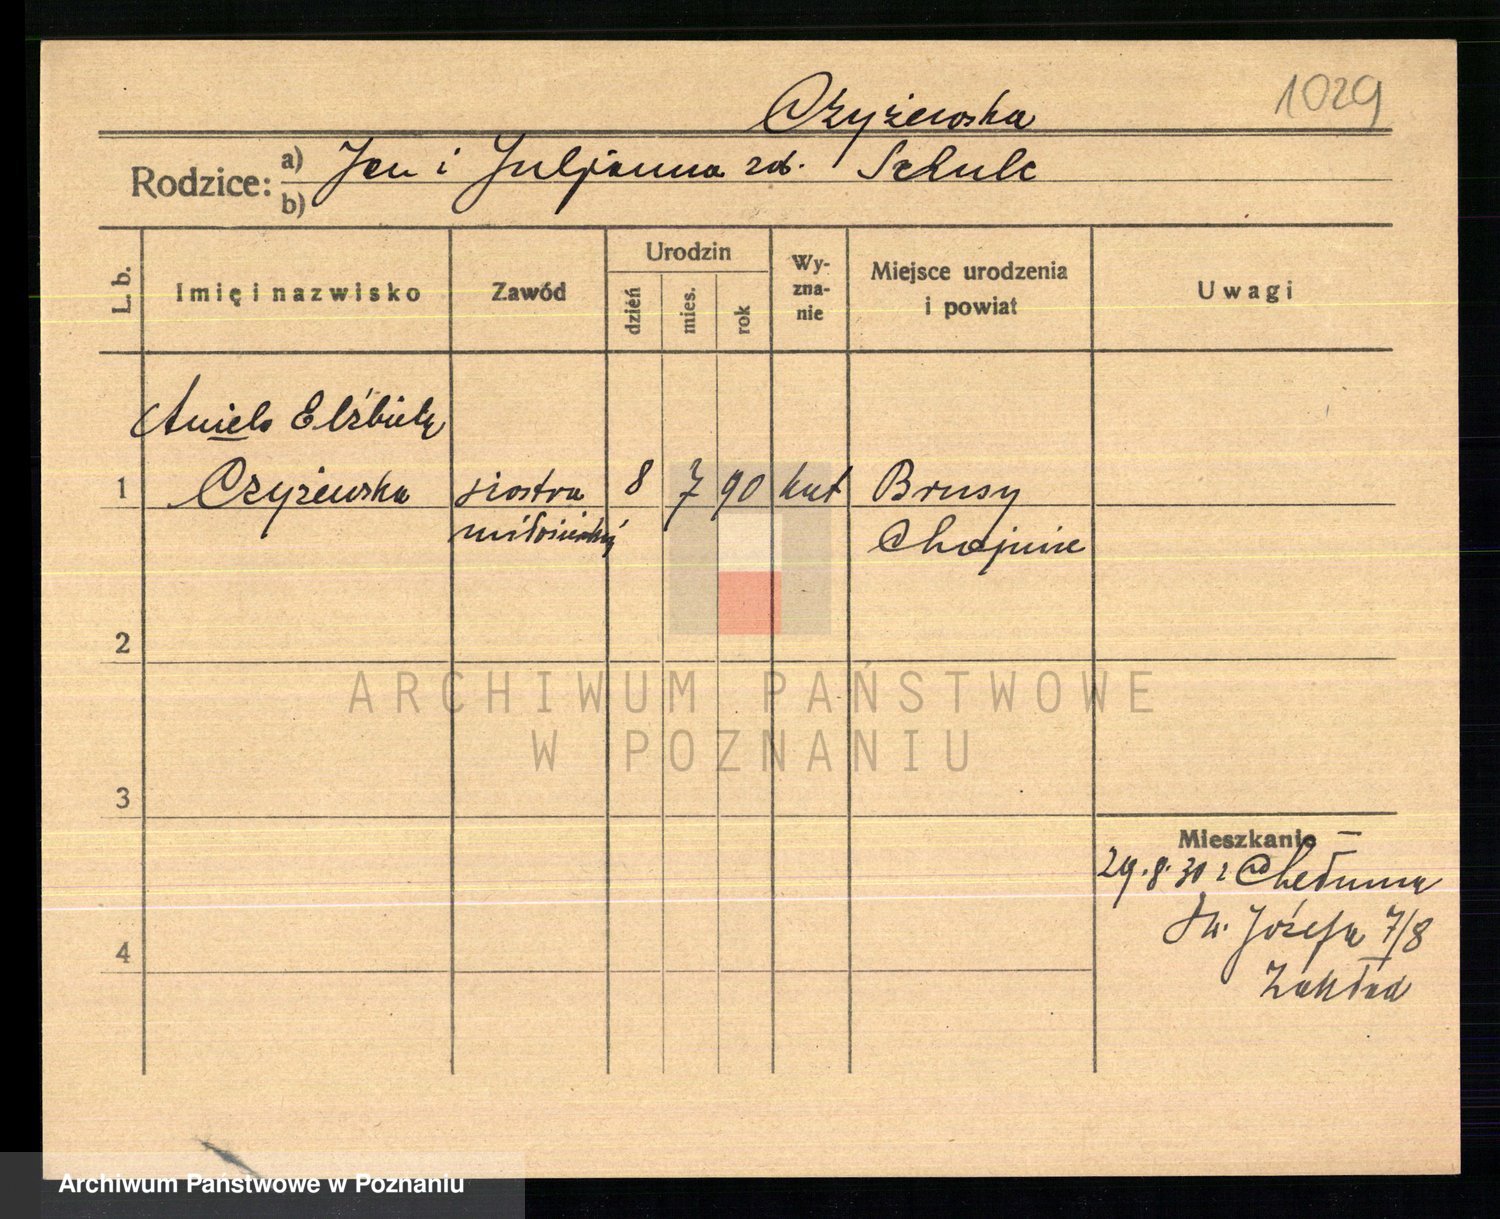 1029
Czyżewska
Rodzice: a) Jan i Juljanna zd. Schulc
b)
L. b.
Imię i nazwisko
Zawód
Urodzin
dzień
mies.
rok
Wy-
zna-
nie
Miejsce urodzenia
i powiat
Uwagi
Aniela Elżbieta
1 Czyżewska siostra 8 7 90 kat Brusy
miłosierdzia Chojnice
2
ARCHIWUM PAŃSTWOWE
W POZNANIU
3
Mieszkanie
29.8.30 z Chełmna
Św. Józefa 7/8
Zakład
4
Archiwum Państwowe w Poznaniu